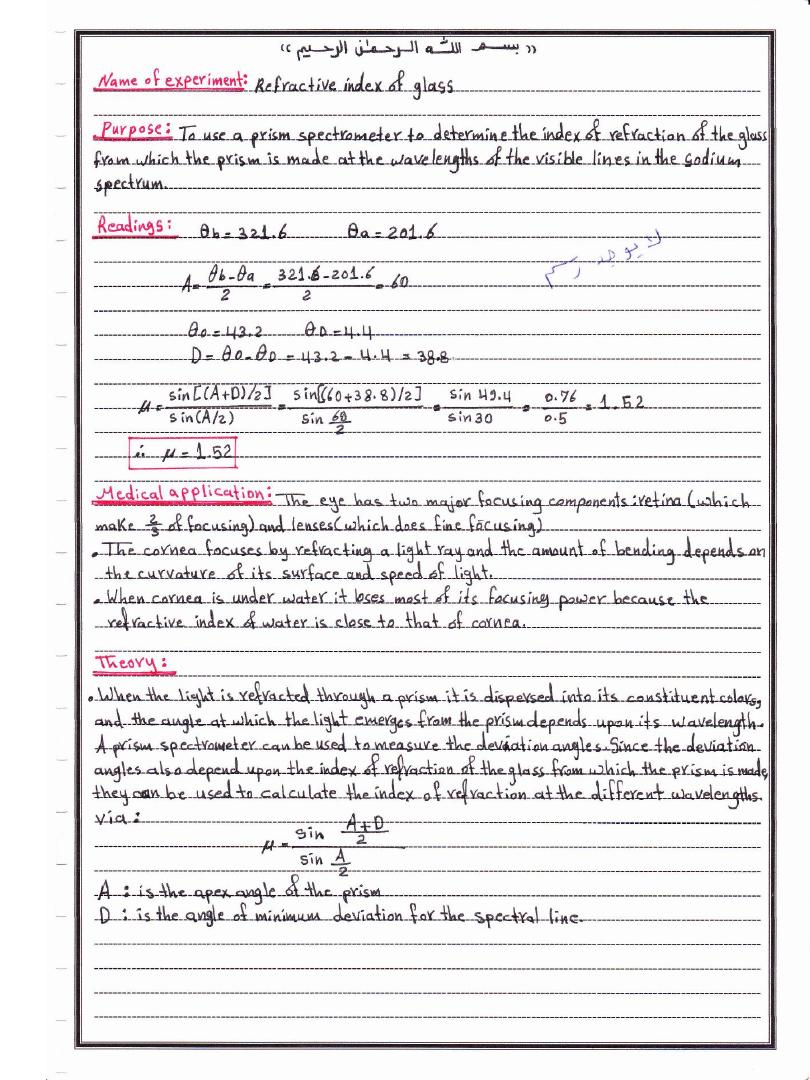 (( بسم الله الرحمن الرحيم ))
Name of experiment: Refractive index of glass
Purpose: To use a prism spectrometer to determine the index of refraction of the glass
from which the prism is made at the wavelengths of the visible lines in the sodium
spectrum.
Readings: θb = 321.6 θa = 201.6
لا يوجد رسم
A = θb-θa / 2 = 321.6-201.6 / 2 = 60
θo = 43.2 θD = 4.4
D = θo - θD = 43.2 - 4.4 = 38.8
μ = sin[(A+D)/2] / sin(A/2) = sin[(60+38.8)/2] / sin 60/2 = sin 49.4 / sin30 = 0.76 / 0.5 = 1.52
∴ μ = 1.52
Medical application: The eye has two major focusing components: retina (which
make 2/3 of focusing) and lenses (which does fine focusing)
• The cornea focuses by refracting a light ray and the amount of bending depends on
the curvature of its surface and speed of light.
• When cornea is under water it loses most of its focusing power because the
refractive index of water is close to that of cornea.
Theory:
• When the light is refracted through a prism it is dispersed into its constituent colors,
and the angle at which the light emerges from the prism depends upon its wavelength.
A prism spectrometer can be used to measure the deviation angles. Since the deviation
angles also depend upon the index of refraction of the glass from which the prism is made,
they can be used to calculate the index of refraction at the different wavelengths.
via:
μ = sin A+D/2 / sin A/2
A : is the apex angle of the prism
D : is the angle of minimum deviation for the spectral line.